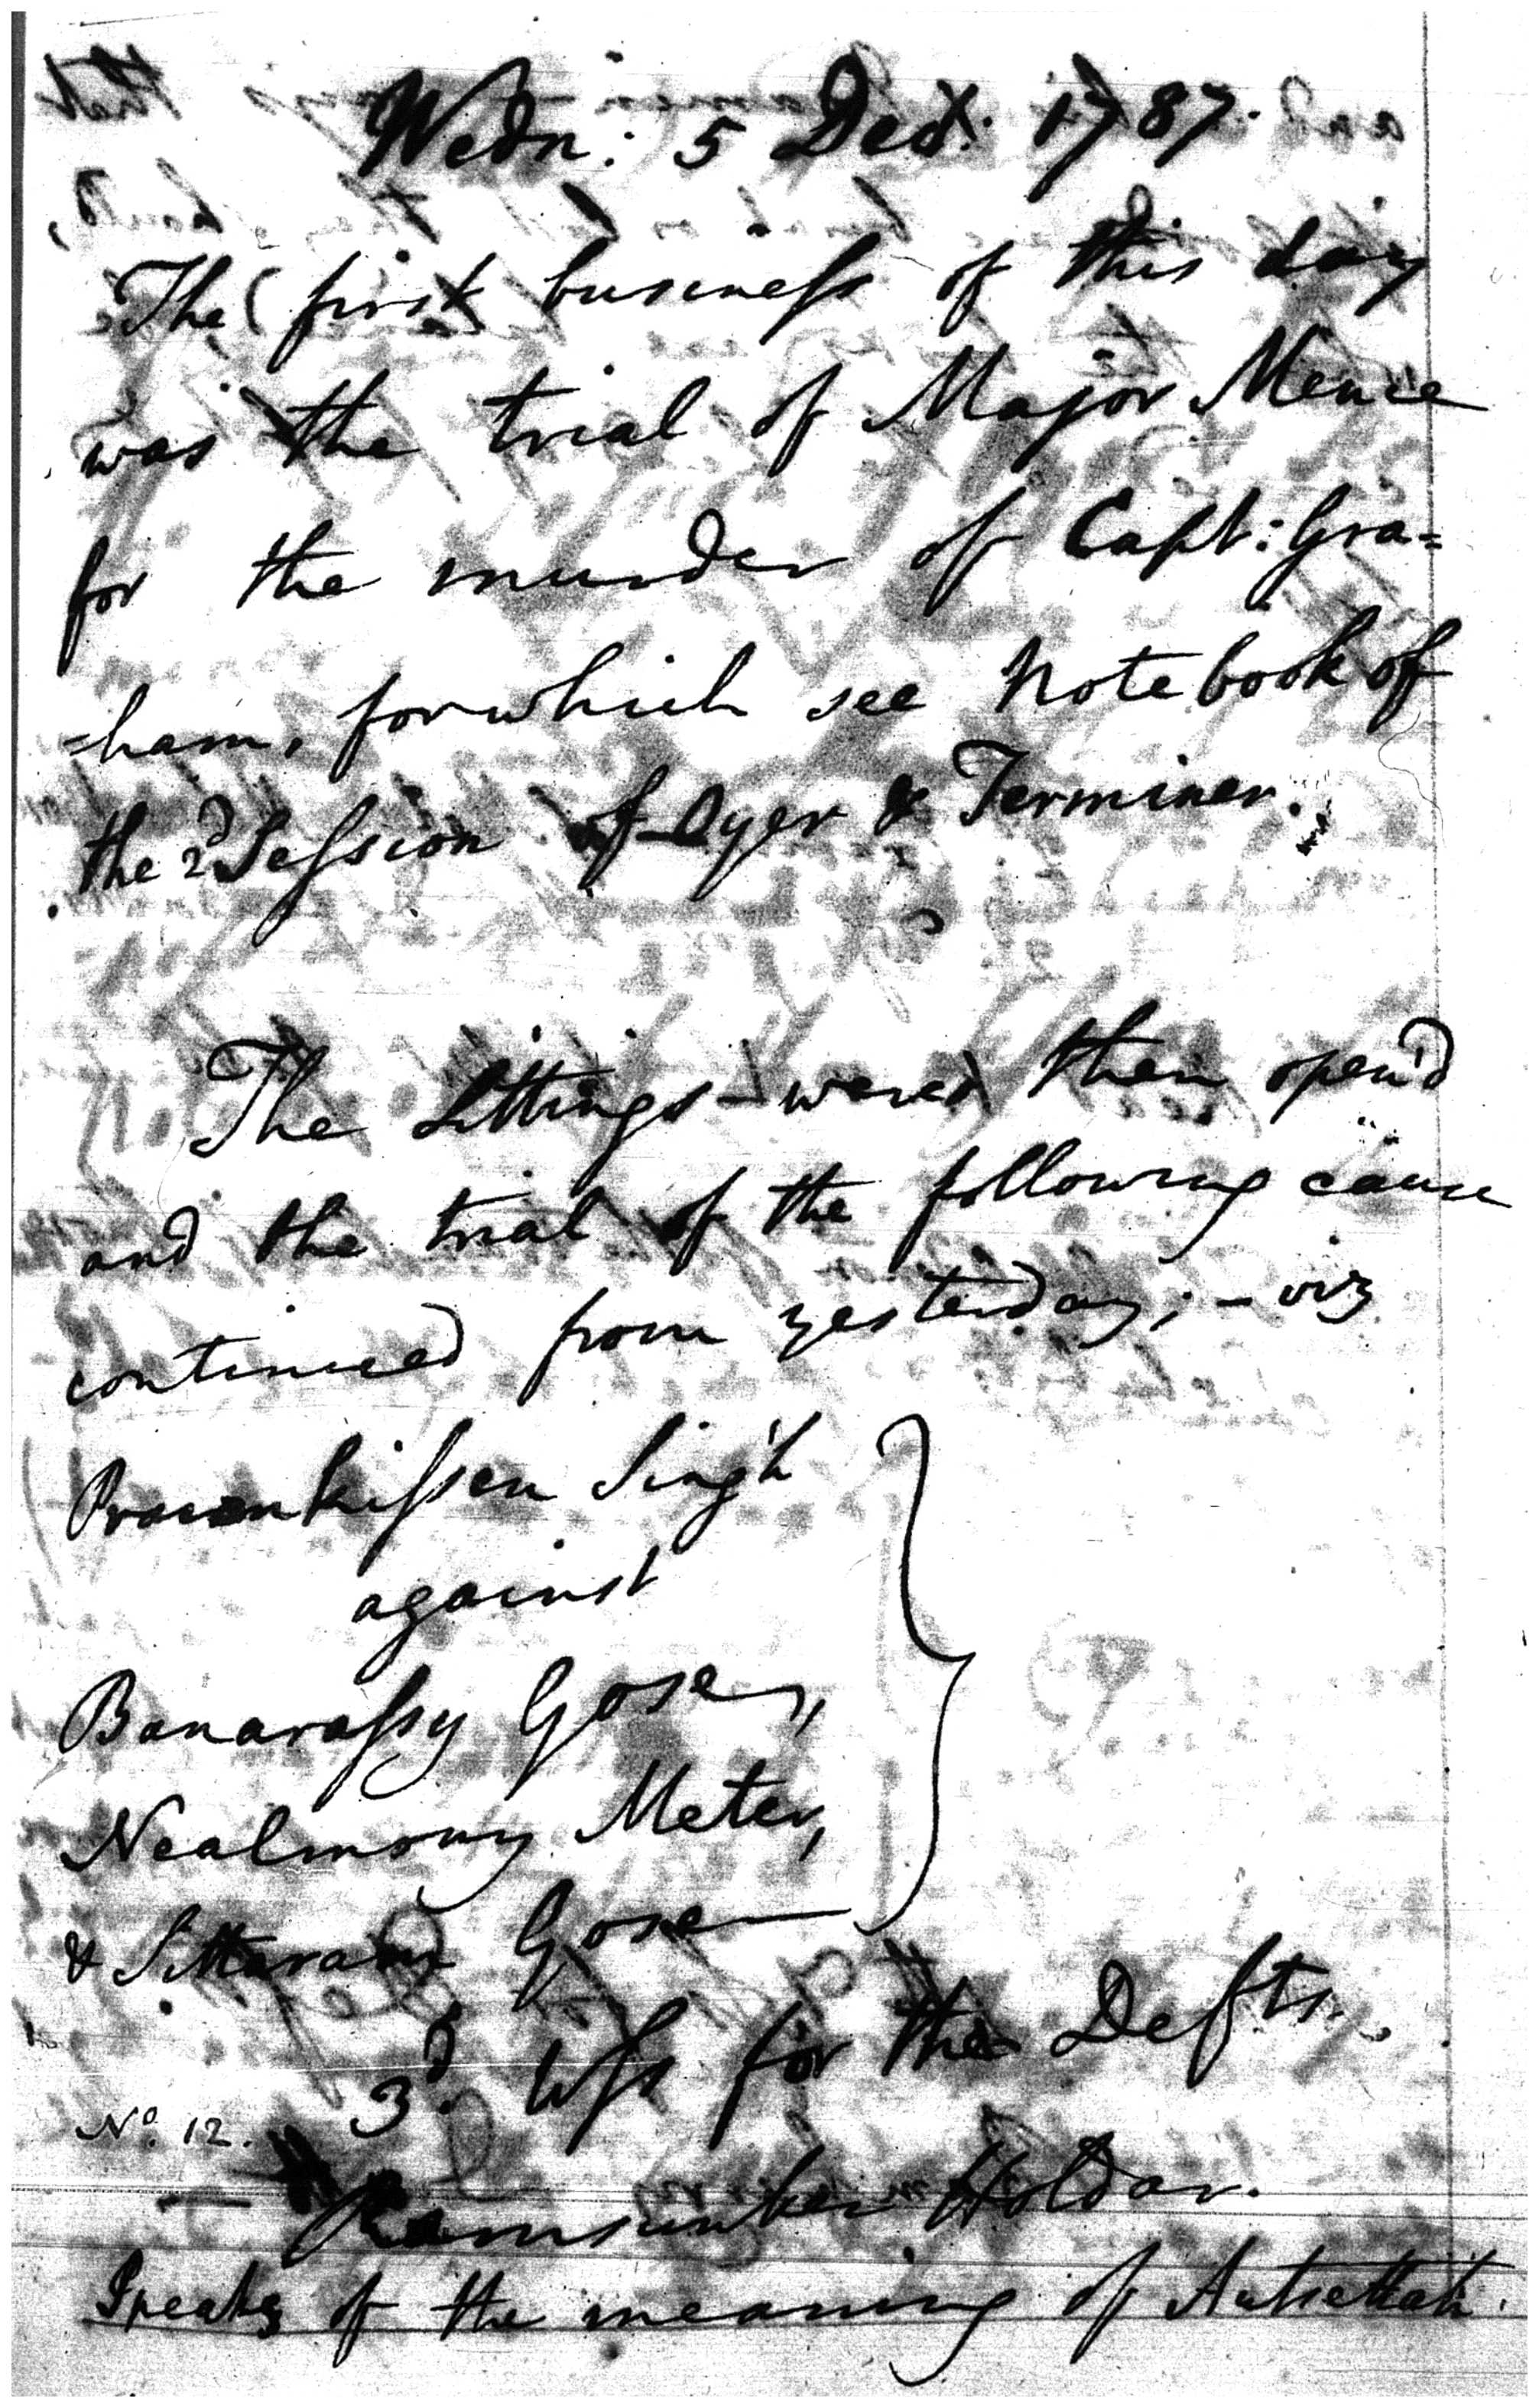 Wedn: 5 Decr. 1787.
The first business of this day
was the trial of Major Mence
for the murder of Capt: Gra=
=ham, for which see Notebook of
the 2d Session of Oyer & Terminer.
The Sittings were then open'd
and the trial of the following cause
continued from yesterday; - viz
Prawnkissen Singh
against
Banarassy Gose,
Nealmony Meter,
& Sittaram Gose
3d. Wss for the Defts.
No. 12.
Ramsunker Holdar.
Speaks of the meaning of